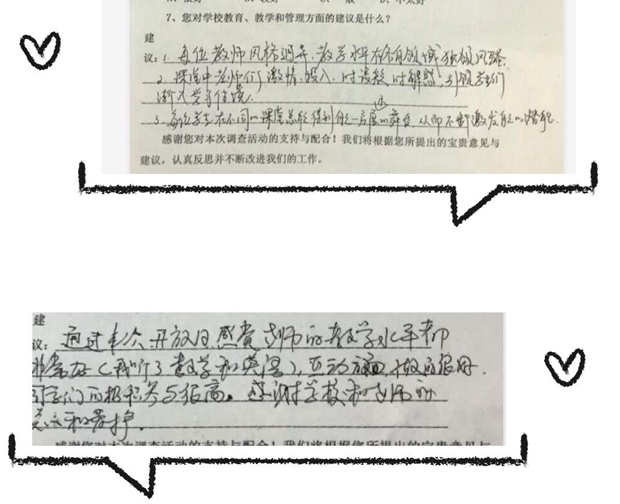 7、您对学校教育、教学和管理方面的建议是什么?
建
议: 1. 每位教师风格迥异,教学水平不俗有领域独领风骚.
2. 课堂中老师们激情投入,时读疑时解惑,引领学生们
渐入学习佳境.
3. 每位学生在不同的课堂总能得到能一展的舞台从而不断激发自己的潜能.
感谢您对本次调查活动的支持与配合!我们将根据您所提出的宝贵意见与
建议,认真反思并不断改进我们的工作。
建
议: 通过本次开放日感觉老师的教学水平都
非常好(我听了数学和英语),互动方面做的很好.
同学们的积极参与很高。感谢学校和老师的
关心和爱护.
感谢您对本次调查活动的支持与配合!我们将根据您所提出的宝贵意见与